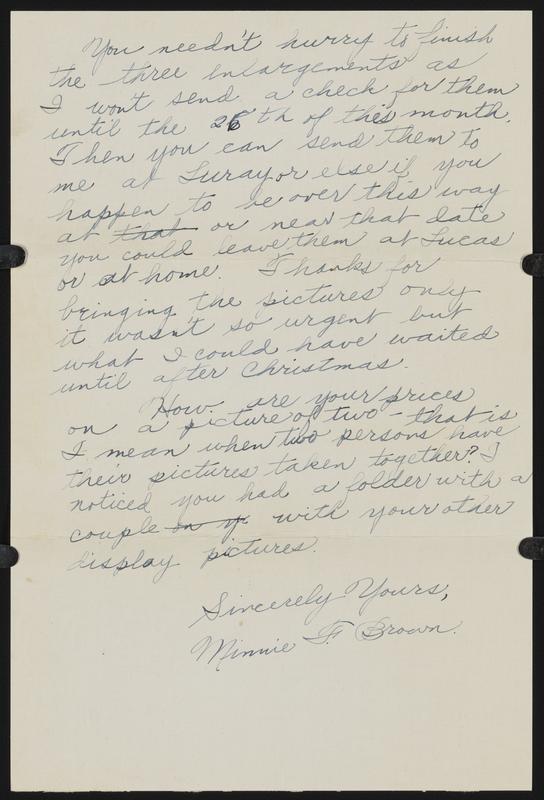 You needn't hurry to finish
the three enlargements as
I won't send a check for them
until the 26th of this month.
Then you can send them to
me at Luray or else if you
happen to be over this way
at that or near that date
you could leave them at Lucas
or at home. Thanks for
bringing the pictures only
it wasn't so urgent but
what I could have waited
until after Christmas.
How are your prices
on a picture of two - that is
I mean when two persons have
their pictures taken together? I
noticed you had a folder with a
couple on y with your other
display pictures.
Sincerely Yours,
Minnie F. Brown.